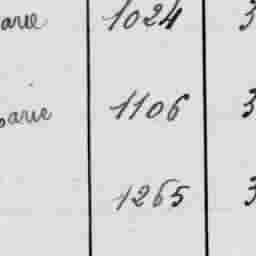 arie 1024 3
arie 1106 3
1265 3